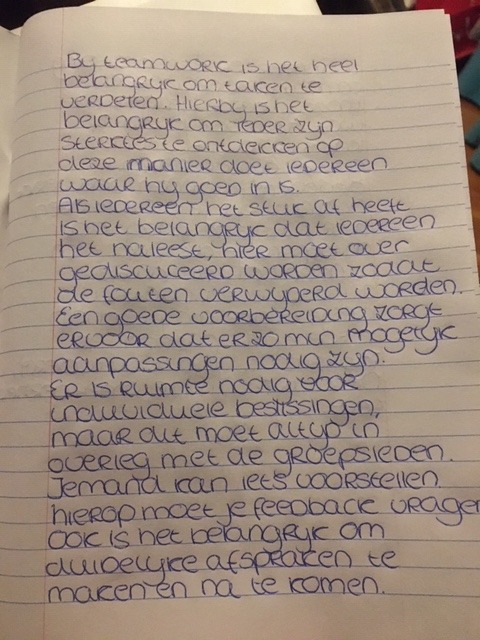 By teamwork is het heel
belangryk om taken te
verdelen. Hierby is het
belangryk om ieder zyn
sterkte te ontdekken op
deze manier doet iedereen
waar hy goed in is.
Als iedereen het stuk af heeft
is het belangryk dat iedereen
het naleest, hier moet over
gediscuceerd worden zodat
de fouten verwyderd worden.
Een goede voorbereiding zorgt
ervoor dat er zo min mogelyk
aanpassingen nodig zyn.
Er is ruimte nodig voor
individuele beslissingen,
maar dit moet altyd in
overleg met de groepsleden.
Iemand kan iets voorstellen
hierop moet je feedback vragen
ook is het belangryk om
duidelyke afspraken te
maken en na te komen.